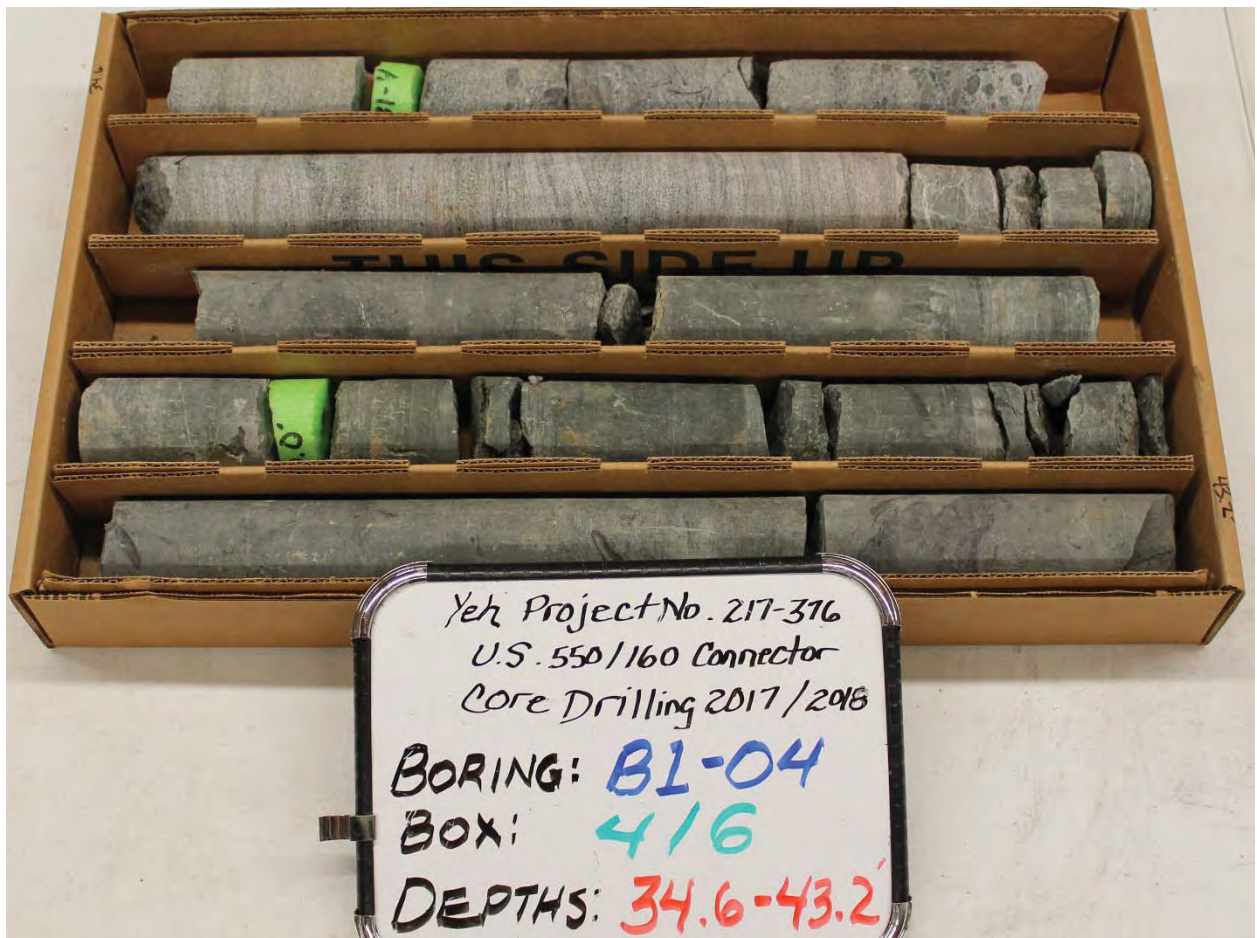 34.6
B1-4
THIS SIDE UP
.0'
43.2'
Yeh Project No. 217-376
U.S. 550/160 Connector
Core Drilling 2017/2018
BORING: B1-04
BOX: 4/6
DEPTHS: 34.6-43.2'